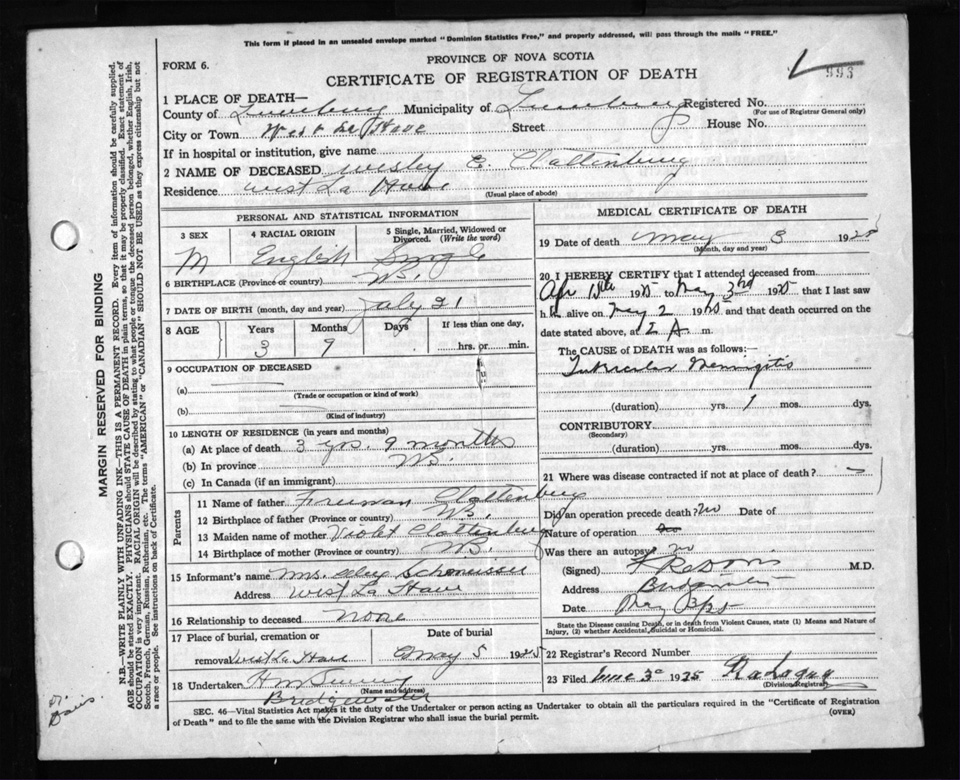 This form if placed in an unsealed envelope marked "Dominion Statistics Free," and properly addressed, will pass through the mails "FREE."
FORM 6.
PROVINCE OF NOVA SCOTIA
CERTIFICATE OF REGISTRATION OF DEATH
993
1 PLACE OF DEATH—
County of Lunenburg Municipality of Lunenburg Registered No.
(For use of Registrar General only)
City or Town West La Have Street House No.
If in hospital or institution, give name
2 NAME OF DECEASED Wesley E. Clattenburg
Residence West La Have
(Usual place of abode)
PERSONAL AND STATISTICAL INFORMATION
3 SEX 4 RACIAL ORIGIN 5 Single, Married, Widowed or Divorced. (Write the word)
M English Single
6 BIRTHPLACE (Province or country)
7 DATE OF BIRTH (month, day and year) July 21
8 AGE Years Months Days If less than one day,
3 9 hrs. or min.
9 OCCUPATION OF DECEASED
(a)
(Trade or occupation or kind of work)
(b)
(Kind of industry)
10 LENGTH OF RESIDENCE (in years and months)
(a) At place of death 3 yrs. 9 months
(b) In province
(c) In Canada (if an immigrant)
Parents
11 Name of father Freeman Clattenburg
12 Birthplace of father (Province or country)
13 Maiden name of mother Violet Clattenburg
14 Birthplace of mother (Province or country)
15 Informant's name Mrs.
Address West La Have
16 Relationship to deceased None
17 Place of burial, cremation or Date of burial
removal West La Have May 5 1925
18 Undertaker
(Name and address)
Bridgewater
MEDICAL CERTIFICATE OF DEATH
19 Date of death May 3 1925
(Month, day and year)
20 I HEREBY CERTIFY that I attended deceased from
Apr 1925 to May 3rd 1925 that I last saw
h alive on May 2 1925 and that death occurred on the
date stated above, at A. m.
The CAUSE OF DEATH was as follows:—
Tubercular Meningitis
(duration) yrs. 1 mos. dys.
CONTRIBUTORY
(Secondary)
(duration) yrs. mos. dys.
21 Where was disease contracted if not at place of death?
Did an operation precede death? no Date of
Nature of operation
Was there an autopsy no
(Signed) M.D.
Address Bridgewater
Date May 3/25
State the Disease causing Death, or in death from Violent Causes, state (1) Means and Nature of Injury, (2) whether Accidental, Suicidal or Homicidal.
22 Registrar's Record Number
23 Filed June 3rd 1925
(Division Registrar)
SEC. 46—Vital Statistics Act makes it the duty of the Undertaker or person acting as Undertaker to obtain all the particulars required in the "Certificate of Registration
of Death" and to file the same with the Division Registrar who shall issue the burial permit.
(OVER)
MARGIN RESERVED FOR BINDING
N.B.—WRITE PLAINLY WITH UNFADING INK—THIS IS A PERMANENT RECORD. Every item of information should be carefully supplied.
AGE should be stated EXACTLY. PHYSICIANS should STATE CAUSE OF DEATH in plain terms, so that it may be properly classified. Exact statement of
OCCUPATION is very important. RACIAL ORIGIN will be described by stating to what people or tongue the deceased person belonged, whether English, Irish,
Scotch, French, German, Russian, Ruthenian, etc. The terms "AMERICAN" or "CANADIAN" SHOULD NOT BE USED as they express citizenship but not
a race or people. See instructions on back of Certificate.
Davis